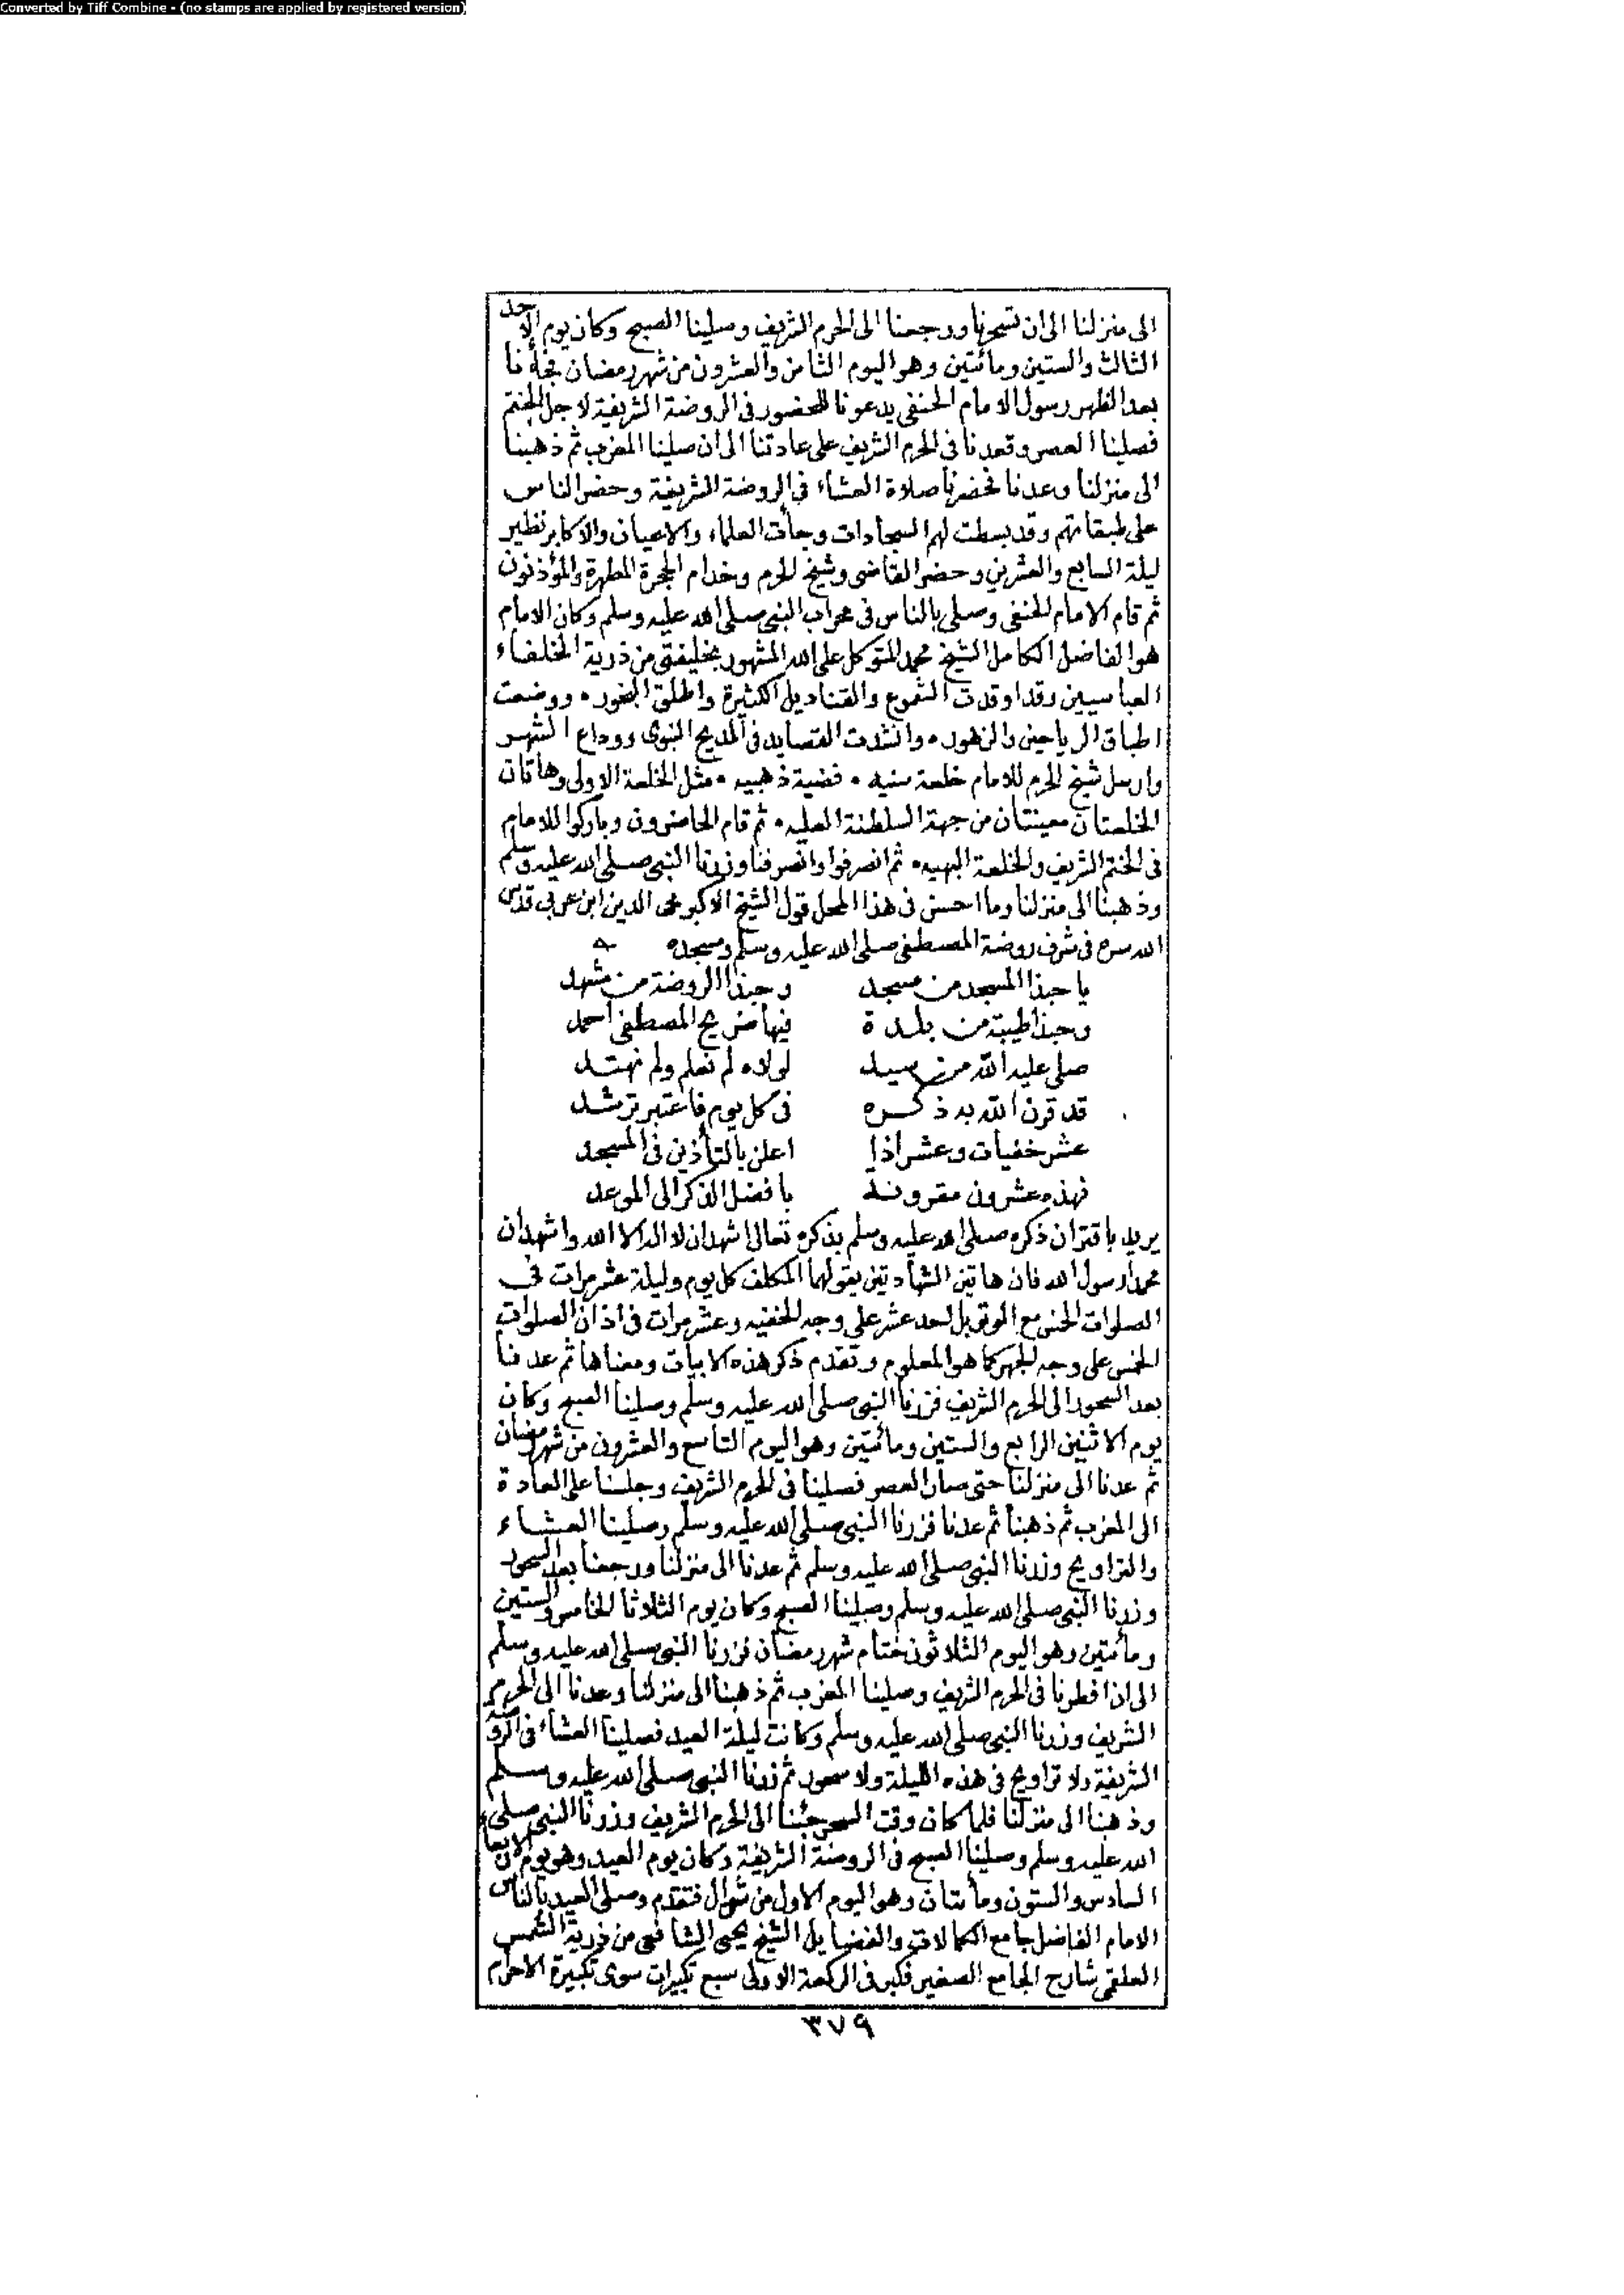 Converted by Tiff Combine - (no stamps are applied by registered version)
الى منزلنا الى ان تسحرنا ورجعنا الى الحرم الشريف وصلينا الصبح وكان يوم الاحد
الثالث والستين ومائتين وهو اليوم الثامن والعشرون من شهر رمضان فجاءنا
بعد الظهر رسول الامام الحنفى يدعونا للحضور فى الروضة الشريفة لاجل الختم
فصلينا العصر وقعدنا فى الحرم الشريف على عادتنا الى ان صلينا المغرب ثم ذهبنا
الى منزلنا وعدنا فحضرنا صلاة العشاء فى الروضة الشريفة وحضر الناس
على طبقاتهم وقد بسطت لهم السجادات وجاءت العلماء والاعيان والاكابر نظير
ليلة السابع والعشرين وحضر القاضى وشيخ الحرم وخدام الحجرة المطهرة والمؤذنون
ثم قام الامام الحنفى وصلى بالناس فى محراب النبى صلى الله عليه وسلم وكان الامام
هو الفاضل الكامل الشيخ محمد المتوكل على الله المشهور بخليفتى من ذرية الخلفاء
العباسيين وقد اوقدت الشموع والقناديل الكثيرة واطلق البخور • ووضعت
اطباق الرياحين والزهور • وانشدت القصايد فى المديح النبوى ووداع الشهر
وارسل شيخ الحرم للامام خلعة سنيه • فضية ذهبيه • مثل الخلعة الاولى وهاتان
الخلعتان معينتان من جهة السلطنة العليه • ثم قام الحاضرون وباركوا للامام
فى الختم الشريف والخلعة البهيه • ثم انصرفوا وانصرفنا وزرنا النبى صلى الله عليه وسلم
وذهبنا الى منزلنا وما احسن فى هذا المحل قول الشيخ الاكبر محى الدين ابن عربى قدس
الله سره فى شرف روضة المصطفى صلى الله عليه وسلم ومسجده
يا حبذا المسجد من مسجد وحبذا الروضة من مشهد
وحبذا طيبة من بلدة فيها ضريح المصطفى احمد
صلى عليه الله من سيد لولاه لم نعلم ولم نهتد
قد قرن الله به ذكره فى كل يوم فاعتبر ترشد
عشر خفيات وعشر اذا اعلن بالتأذين فى المسجد
فهذه عشرون مقرونة بافضل الذكر الى الموعد
يريد باقتران ذكره صلى الله عليه وسلم بذكره تعالى اشهد ان لا اله الا الله واشهد ان
محمدا رسول الله فان هاتين الشهادتين يقولهما المكلف كل يوم وليلة عشر مرات فى
الصلوات الخمس مع الوتر بل احد عشر على وجه الخفيه وعشر مرات فى اذان الصلوات
الخمس على وجه الجهر كما هو المعلوم وتقدم ذكر هذه الابيات ومعناها ثم عدنا
بعد السحور الى الحرم الشريف فزرنا النبى صلى الله عليه وسلم وصلينا الصبح وكان
يوم الاثنين الرابع والستين ومائتين وهو اليوم التاسع والعشرون من شهر رمضان
ثم عدنا الى منزلنا حتى صار العصر فصلينا فى الحرم الشريف وجلسنا على العادة
الى المغرب ثم ذهبنا ثم عدنا فزرنا النبى صلى الله عليه وسلم وصلينا العشاء
والتراويح وزرنا النبى صلى الله عليه وسلم ثم عدنا الى منزلنا ورجعنا بعد السحور
وزرنا النبى صلى الله عليه وسلم وصلينا الصبح وكان يوم الثلاثا الخامس والستين
ومائتين وهو اليوم الثلاثون ختام شهر رمضان فزرنا النبى صلى الله عليه وسلم
الى ان افطرنا فى الحرم الشريف وصلينا المغرب ثم ذهبنا الى منزلنا وعدنا الى الحرم
الشريف وزرنا النبى صلى الله عليه وسلم وكانت ليلة العيد فصلينا العشاء فى الروضة
الشريفة ولا تراويح فى هذه الليلة ولا سحور ثم زرنا النبى صلى الله عليه وسلم
وذهبنا الى منزلنا فلما كان وقت السحر جئنا الى الحرم الشريف وزرنا النبى صلى
الله عليه وسلم وصلينا الصبح فى الروضة الشريفة وكان يوم العيد وهو يوم الاربعا
السادس والستون ومائتان وهو اليوم الاول من شوال فتقدم وصلى العيد بالناس
الامام الفاضل جامع الكمالات والفضايل الشيخ يحيى الشافعى من ذرية الشمس
العلقمى شارح الجامع الصغير فكبر فى الركعة الاولى سبع تكبيرات سوى تكبيرة الاحرام
٣٧٩